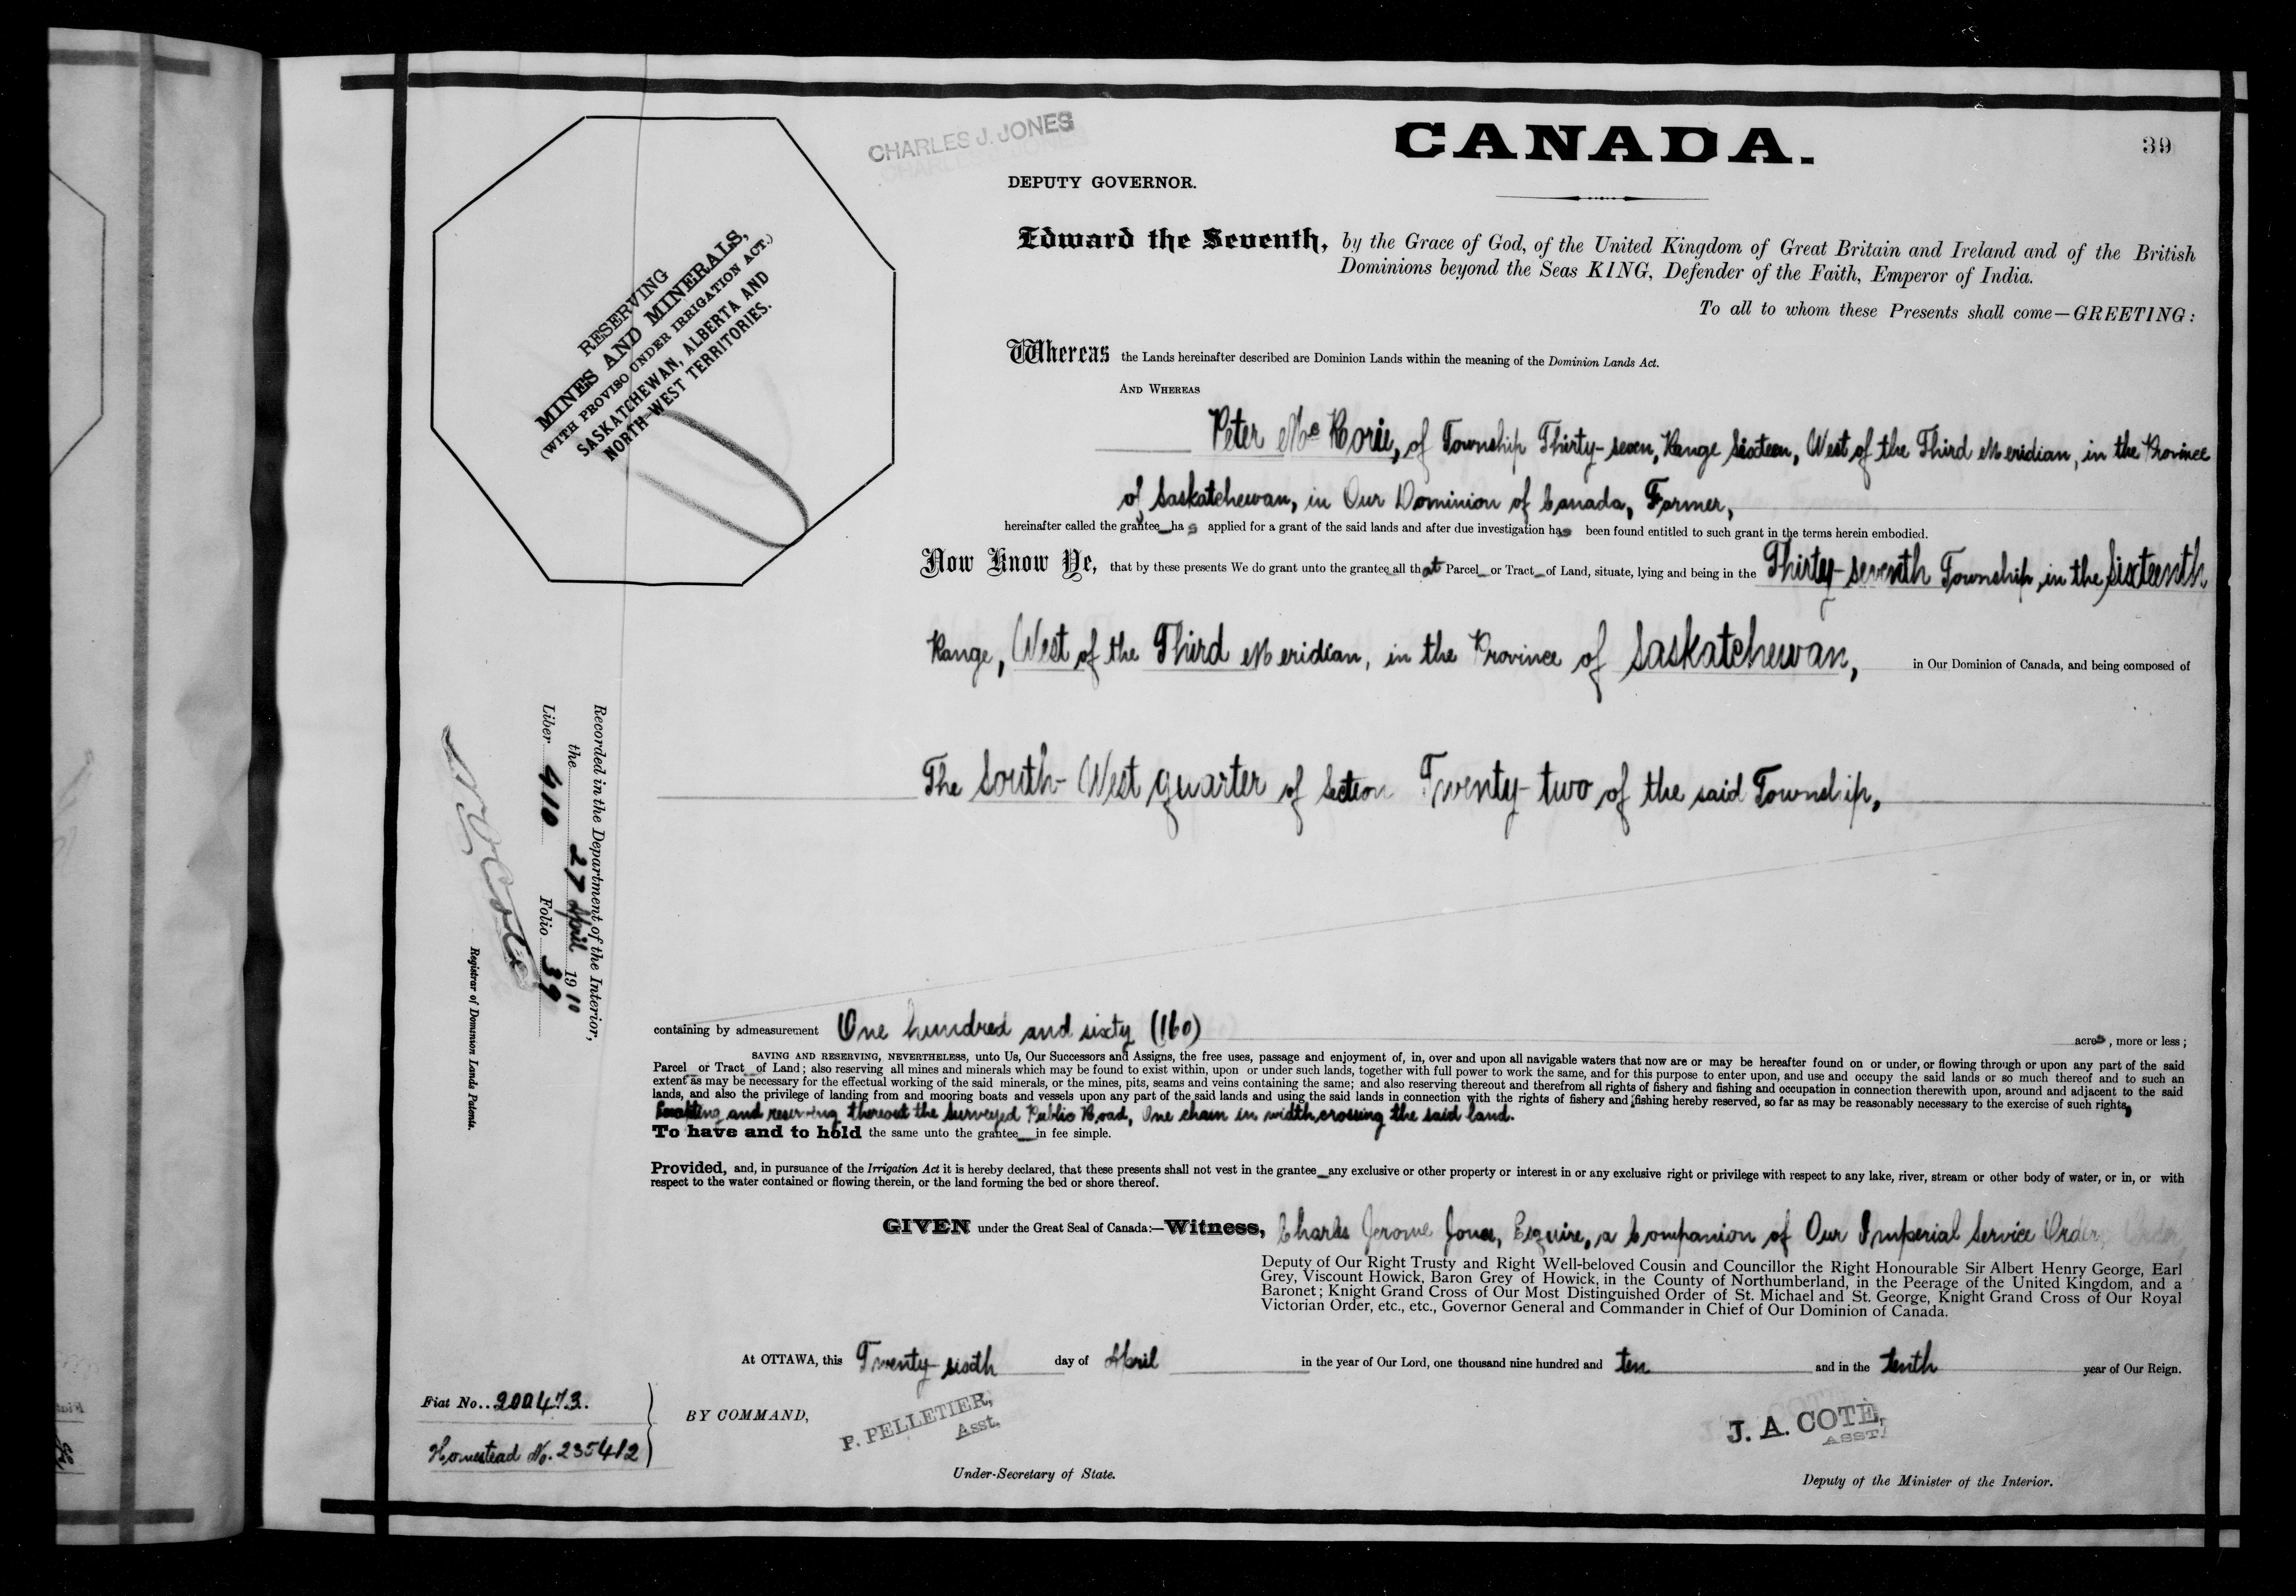 CHARLES J. JONES
CANADA.
39
DEPUTY GOVERNOR.
Edward the Seventh, by the Grace of God, of the United Kingdom of Great Britain and Ireland and of the British
Dominions beyond the Seas KING, Defender of the Faith, Emperor of India.
To all to whom these Presents shall come—GREETING:
RESERVING
MINES AND MINERALS,
(WITH PROVISO UNDER IRRIGATION ACT.)
SASKATCHEWAN, ALBERTA AND
NORTH-WEST TERRITORIES.
Whereas the Lands hereinafter described are Dominion Lands within the meaning of the Dominion Lands Act.
AND WHEREAS
Peter Mc Rorie, of Township Thirty-seven, Range Sixteen, West of the Third Meridian, in the Province
of Saskatchewan, in Our Dominion of Canada, Farmer,
hereinafter called the grantee has applied for a grant of the said lands and after due investigation has been found entitled to such grant in the terms herein embodied.
Now Know Ye, that by these presents We do grant unto the grantee all that Parcel or Tract of Land, situate, lying and being in the Thirty-seventh Township, in the Sixteenth
Range, West of the Third Meridian, in the Province of Saskatchewan, in Our Dominion of Canada, and being composed of
The South-West quarter of Section Twenty-two of the said Township,
Recorded in the Department of the Interior,
the 27 April 1910
Liber 410 Folio 39
N O Coté
Registrar of Dominion Lands Patents.
containing by admeasurement One hundred and sixty (160) acres, more or less;
SAVING AND RESERVING, NEVERTHELESS, unto Us, Our Successors and Assigns, the free uses, passage and enjoyment of, in, over and upon all navigable waters that now are or may be hereafter found on or under, or flowing through or upon any part of the said
Parcel or Tract of Land; also reserving all mines and minerals which may be found to exist within, upon or under such lands, together with full power to work the same, and for this purpose to enter upon, and use and occupy the said lands or so much thereof and to such an
extent as may be necessary for the effectual working of the said minerals, or the mines, pits, seams and veins containing the same; and also reserving thereout and therefrom all rights of fishery and fishing and occupation in connection therewith upon, around and adjacent to the said
lands, and also the privilege of landing from and mooring boats and vessels upon any part of the said lands and using the said lands in connection with the rights of fishery and fishing hereby reserved, so far as may be reasonably necessary to the exercise of such rights,
and reserving thereout the Surveyed Public Road, One chain in width, crossing the said land.
To have and to hold the same unto the grantee in fee simple.
Provided, and, in pursuance of the Irrigation Act it is hereby declared, that these presents shall not vest in the grantee any exclusive or other property or interest in or any exclusive right or privilege with respect to any lake, river, stream or other body of water, or in, or with
respect to the water contained or flowing therein, or the land forming the bed or shore thereof.
GIVEN under the Great Seal of Canada:—Witness, Charles Jerome Jones, Esquire, a Companion of Our Imperial Service Order,
Deputy of Our Right Trusty and Right Well-beloved Cousin and Councillor the Right Honourable Sir Albert Henry George, Earl
Grey, Viscount Howick, Baron Grey of Howick, in the County of Northumberland, in the Peerage of the United Kingdom, and a
Baronet; Knight Grand Cross of Our Most Distinguished Order of St. Michael and St. George, Knight Grand Cross of Our Royal
Victorian Order, etc., etc., Governor General and Commander in Chief of Our Dominion of Canada.
At OTTAWA, this Twenty-sixth day of April in the year of Our Lord, one thousand nine hundred and ten and in the tenth year of Our Reign.
Fiat No. 200473.
Homestead No. 235412
BY COMMAND,
P. PELLETIER,
Asst.
Under-Secretary of State.
J. A. COTÉ,
ASST.
Deputy of the Minister of the Interior.